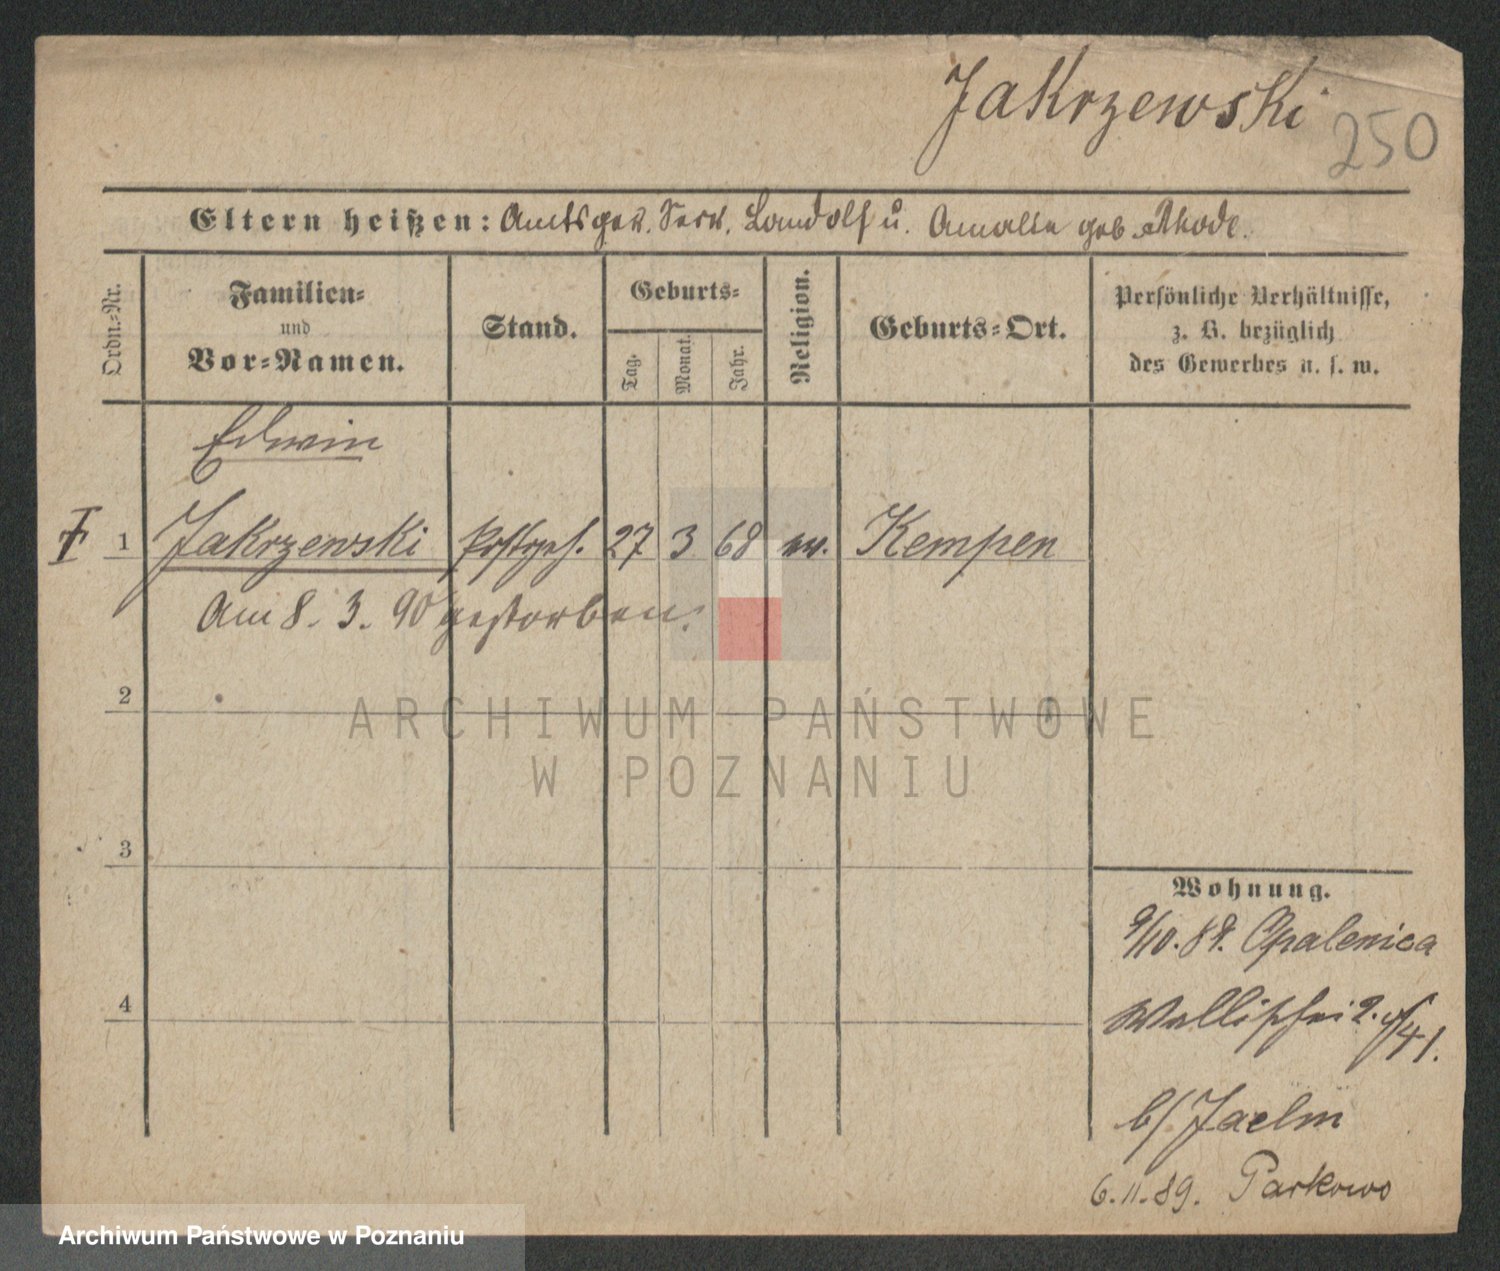 Jakrzewski
250
Eltern heißen: Amtsger. Sekr. Landolf u. Amalie geb. Rhode.
Ordn.-Nr.
Familien-
und
Vor-Namen.
Stand.
Geburts-
Tag.
Monat.
Jahr.
Religion.
Geburts-Ort.
Persönliche Verhältnisse,
z. B. bezüglich
des Gewerbes u. s. w.
Edwin
1 Jakrzewski Postgeh. 27 3 68 ev. Kempen
Am 8. 3. 90 gestorben.
2
3
4
Wohnung.
9/10.89. Opalenica
Wallischei 2.
b/
6.11.89. Parkowo
ARCHIWUM PAŃSTWOWE
W POZNANIU
Archiwum Państwowe w Poznaniu